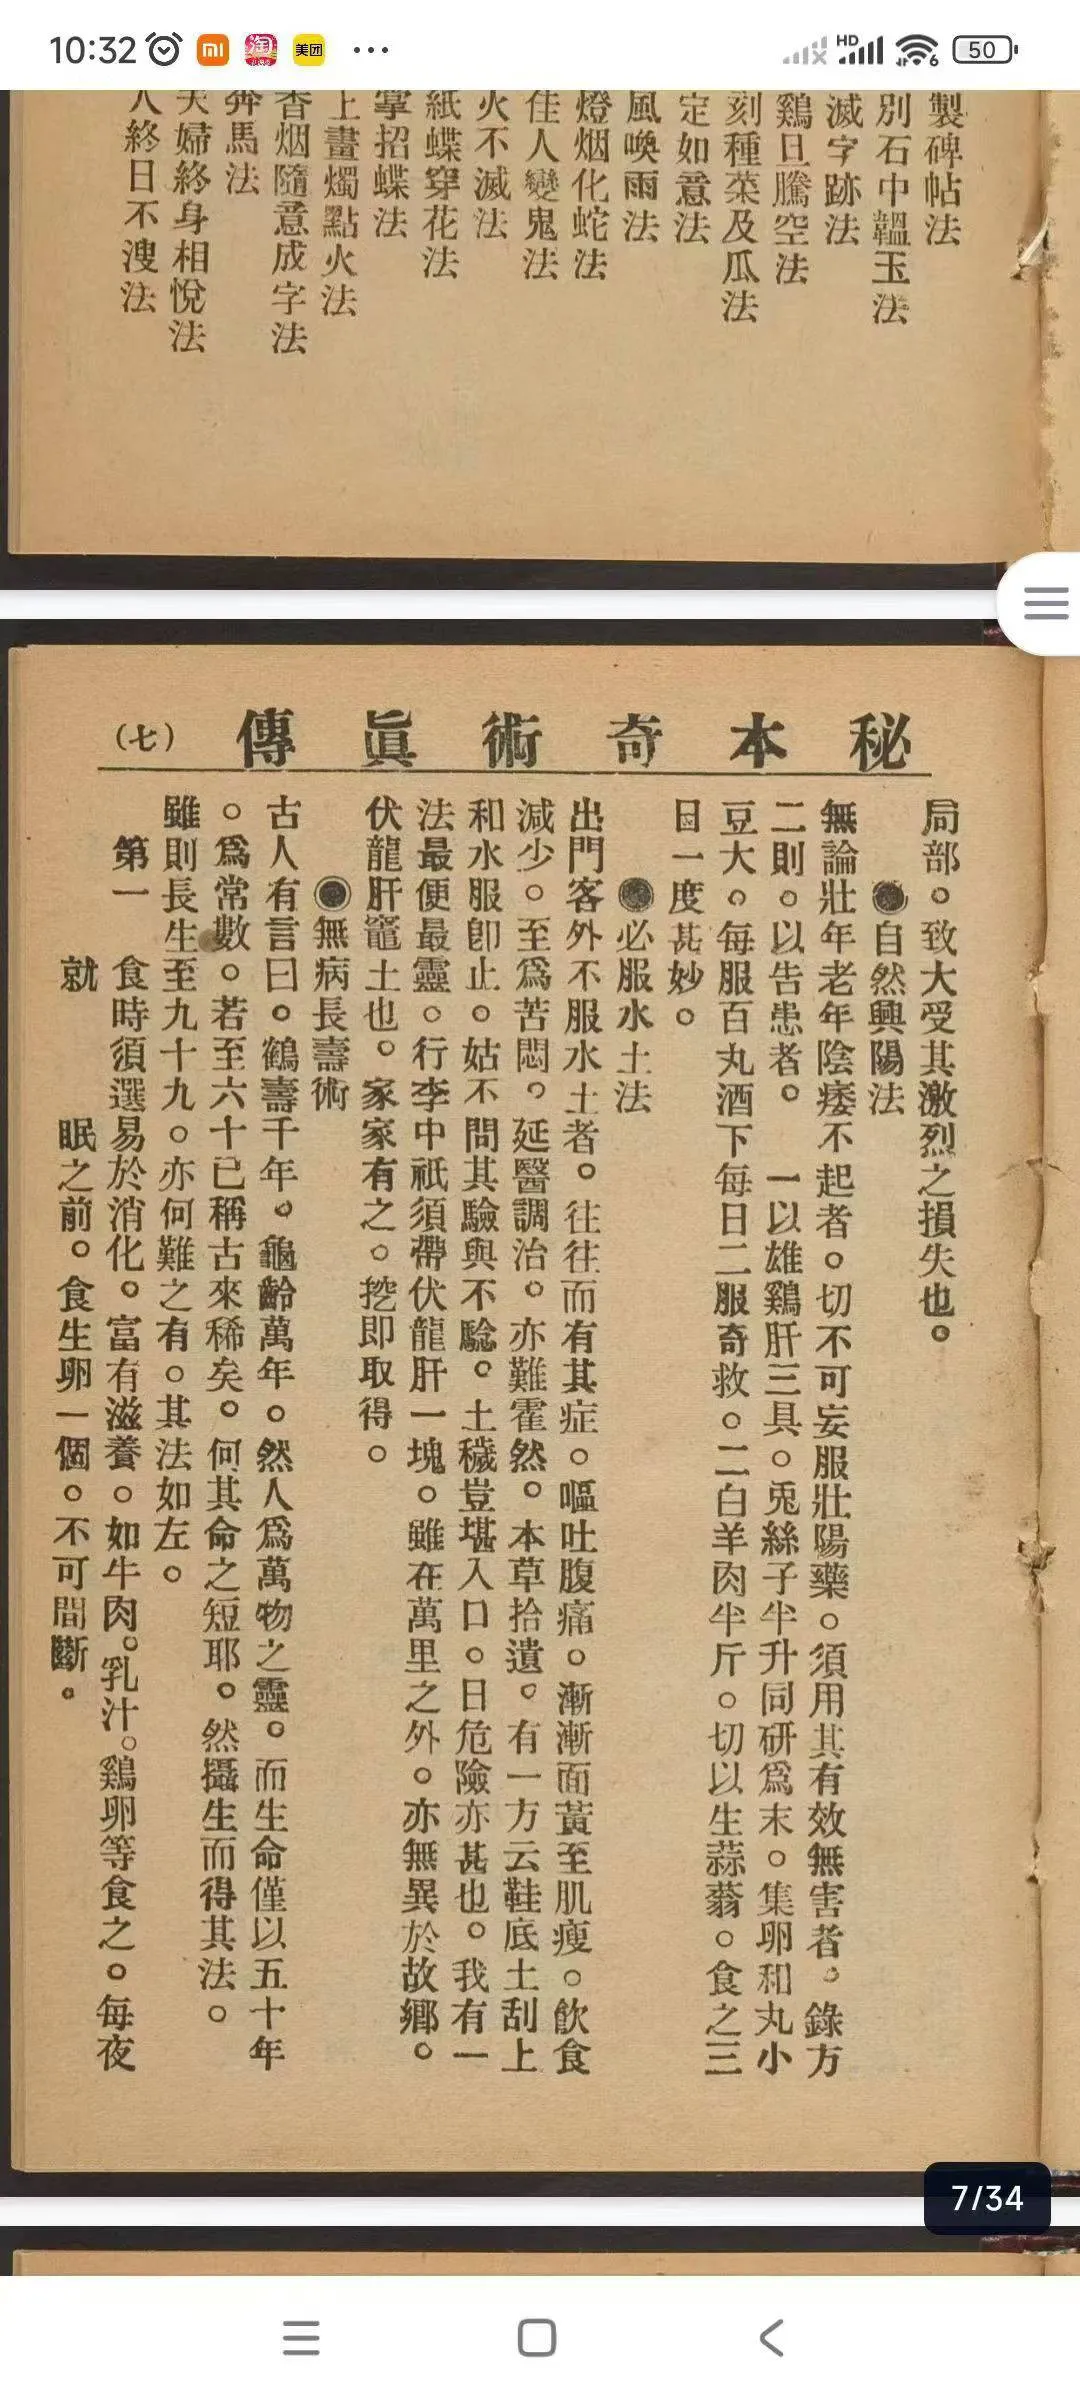 10:32
美团
HD
6
50
製碑帖法
別石中韞玉法
滅字跡法
鷄旦騰空法
刻種菜及瓜法
定如意法
風喚雨法
燈烟化蛇法
佳人變鬼法
火不滅法
紙蝶穿花法
掌招蝶法
上畫燭點火法
香烟隨意成字法
奔馬法
夫婦終身相悅法
人終日不溲法
秘本奇術眞傳
(七)
局部。致大受其激烈之損失也。
●自然興陽法
無論壯年老年陰痿不起者。切不可妄服壯陽藥。須用其有效無害者。錄方
二則。以告患者。 一以雄鷄肝三具。兎絲子半升同研爲末。集卵和丸小
豆大。每服百丸酒下每日二服奇救。二白羊肉半斤。切以生蒜蓊。食之三
日一度甚妙。
●必服水土法
出門客外不服水土者。往往而有其症。嘔吐腹痛。漸漸面黃至肌瘦。飲食
減少。至爲苦悶。延醫調治。亦難霍然。本草拾遺。有一方云鞋底土刮上
和水服卽止。姑不問其驗與不驗。土穢豈堪入口。日危險亦甚也。我有一
法最便最靈。行李中祇須帶伏龍肝一塊。雖在萬里之外。亦無異於故鄉。
伏龍肝竈土也。家家有之。挖即取得。
●無病長壽術
古人有言曰。鶴壽千年。龜齡萬年。然人爲萬物之靈。而生命僅以五十年
。爲常數。若至六十已稱古來稀矣。何其命之短耶。然攝生而得其法。
雖則長生至九十九。亦何難之有。其法如左。
第一 食時須選易於消化。富有滋養。如牛肉。乳汁。鷄卵等食之。每夜
就 眠之前。食生卵一個。不可間斷。
7/34